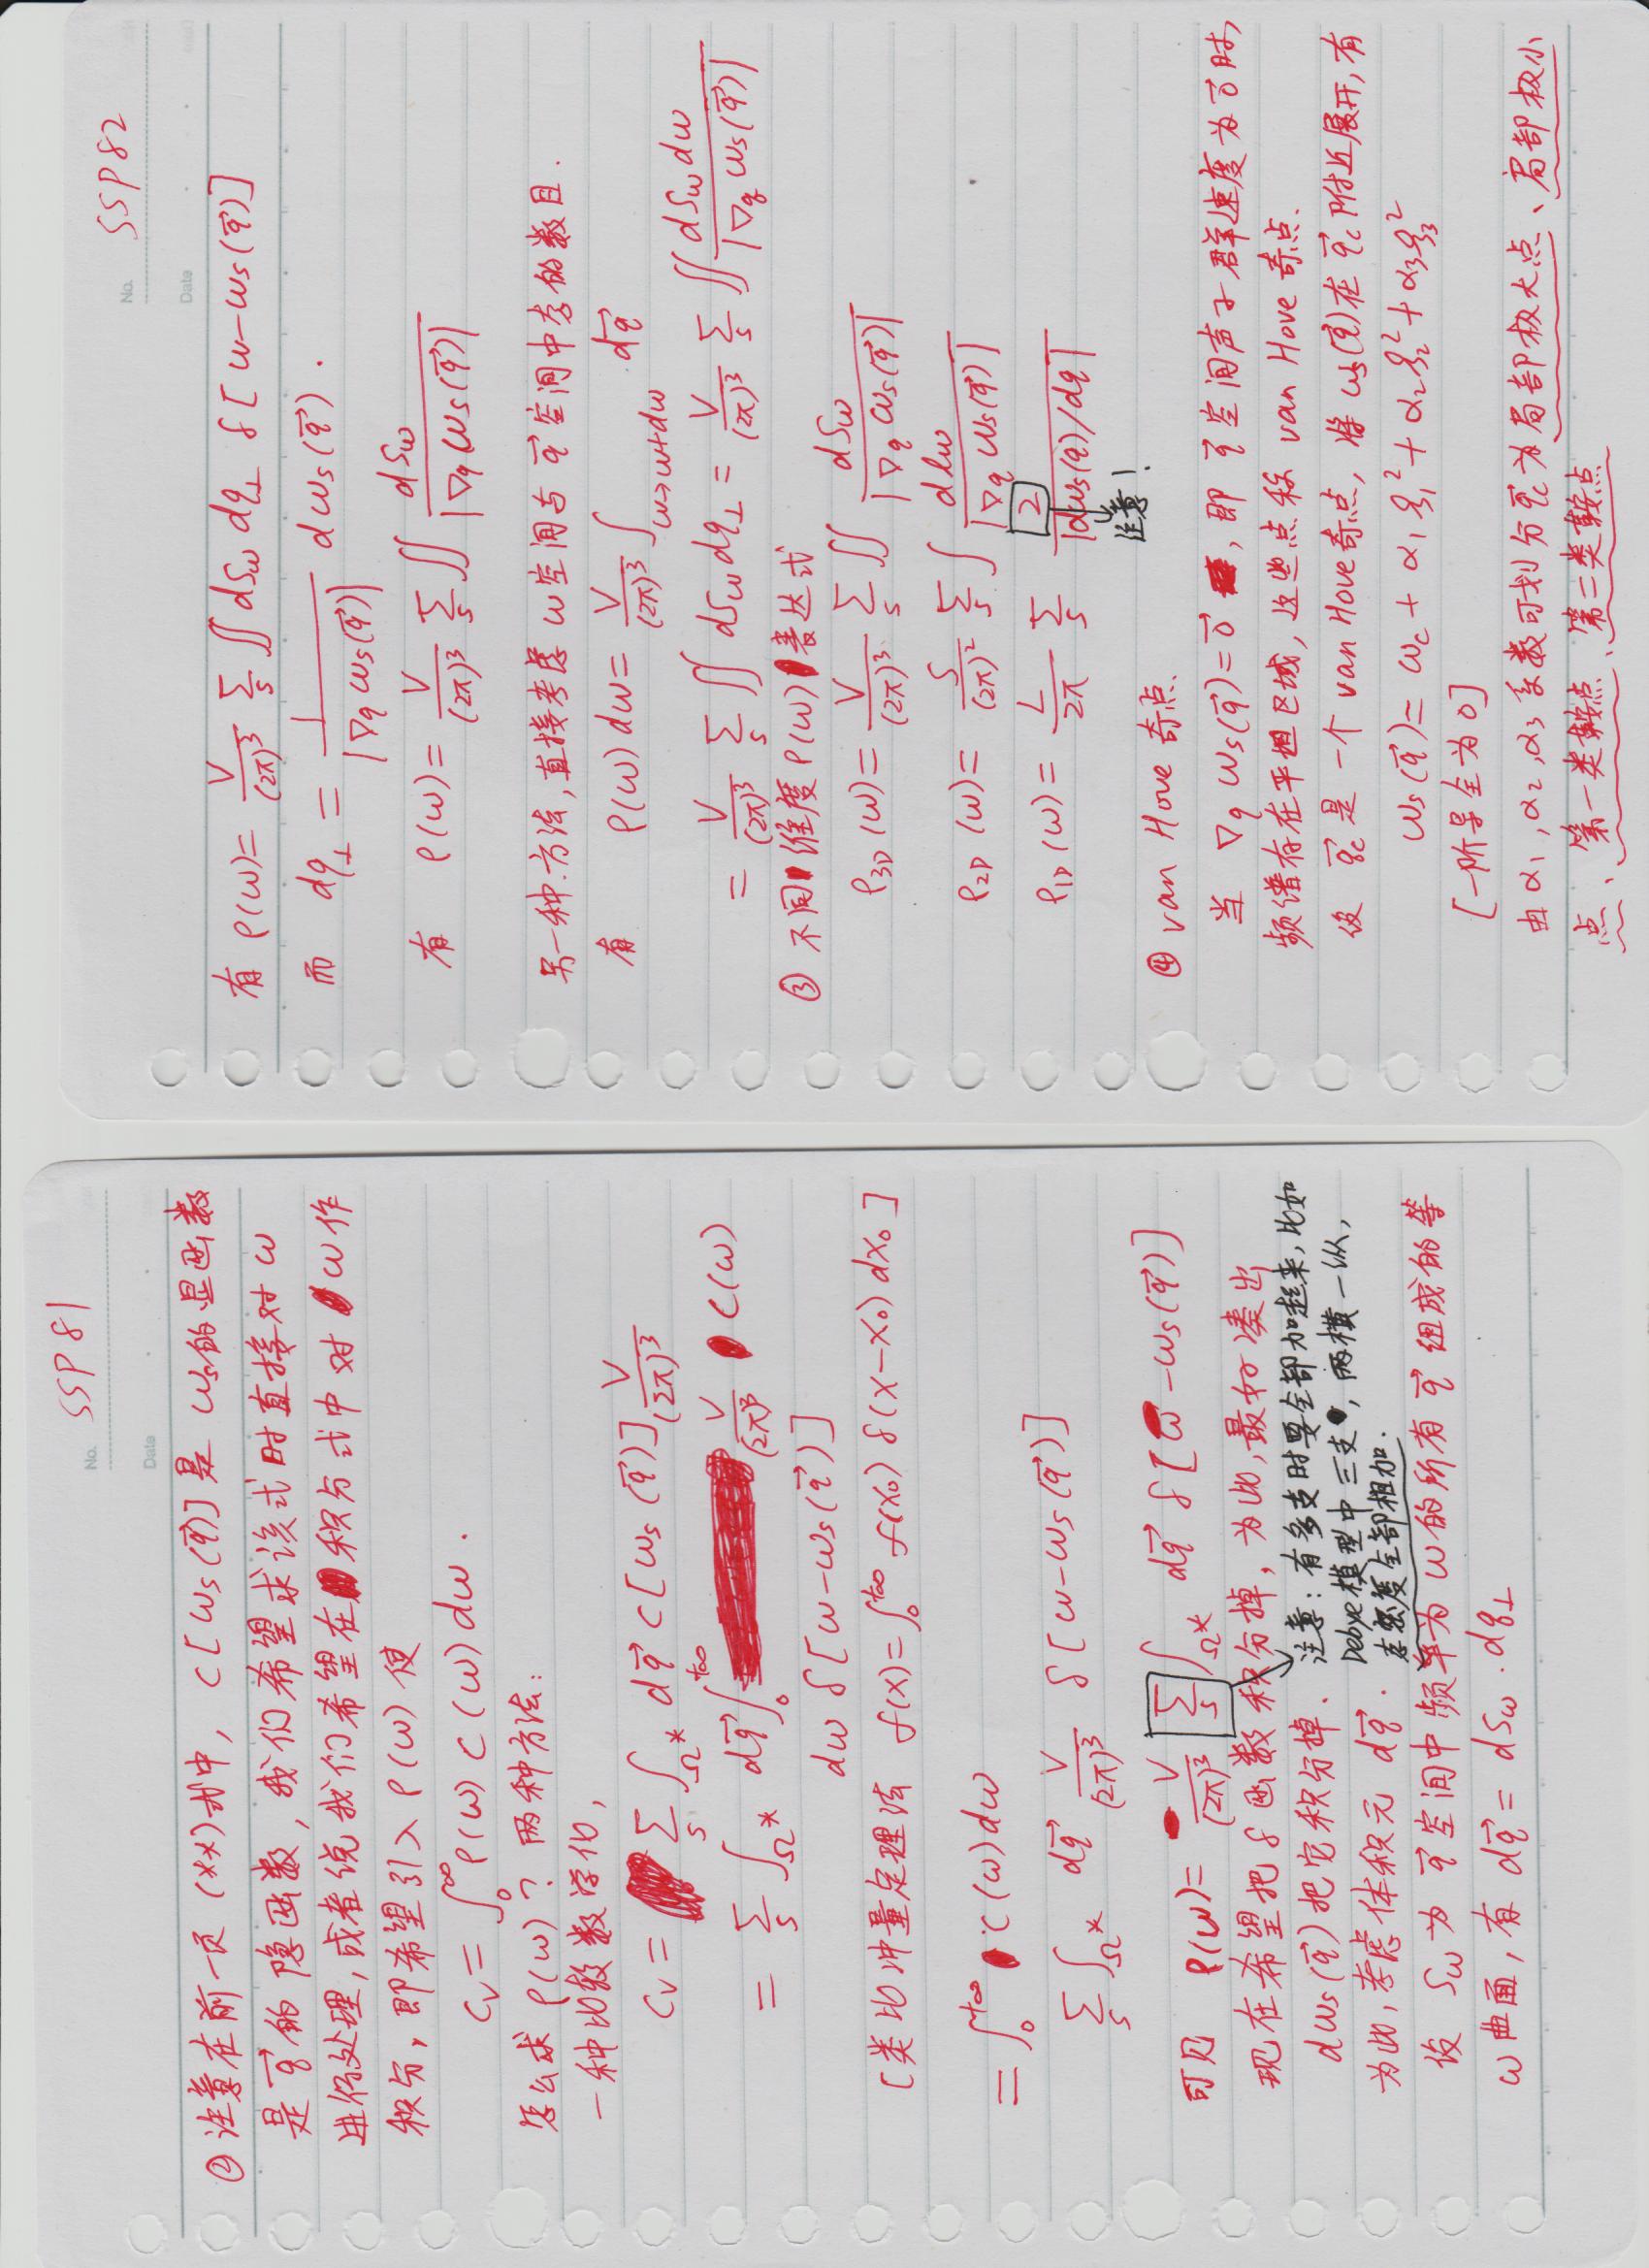 No. SSP 81
Date
② 注意在前一页 (**)式中, C[ωs(q⃗)]是 ωs的显函数
是 q⃗ 的 隐函数, 我们希望求该式时直接对 ω
进行处理, 或者说 我们希望在 积分式中 对 ω 作
积分, 即希望引入 ρ(ω) 使
Cv = ∫₀^∞ ρ(ω) C(ω) dω .
怎么求 ρ(ω) ? 两种方法:
一种比较数学化,
Cv = Σ_s ∫_Ω* dq⃗ C[ωs(q⃗)] V/(2π)³
= Σ_s ∫_Ω* dq⃗ ∫₀^{+∞} V/(2π)³ C(ω)
dω δ[ω-ωs(q⃗)]
[类比冲量定理法 f(x)=∫₀^{+∞} f(x₀) δ(x-x₀) dx₀ ]
= ∫₀^{+∞} C(ω)dω
Σ_s ∫_Ω* dq⃗ V/(2π)³ δ[ω-ωs(q⃗)]
可见 ρ(ω)= V/(2π)³ Σ_s ∫_Ω* dq⃗ δ[ω-ωs(q⃗)]
现在希望把 δ 函数 积分掉, 为此, 最好凑出
dωs(q⃗) 把它积分掉.
注意: 有多支时要全部加起来, 比如
Debye模型中三支, 两横一纵,
态密度全部相加.
为此, 考虑 体积元 dq⃗ .
设 Sω 为 q⃗ 空间中频率为 ω 的所有 q⃗ 组成的等
ω 曲面, 有 dq⃗ = dSω · dq⊥
No. SSP 82
Date
有 ρ(ω)= V/(2π)³ Σ_s ∬ dSω dq⊥ δ[ω-ωs(q⃗)]
而 dq⊥ = 1/|∇q ωs(q⃗)| dωs(q⃗) .
有 ρ(ω)= V/(2π)³ Σ_s ∬ dSω/|∇q ωs(q⃗)|
另一种方法, 直接考虑 ω空间与 q⃗ 空间中态的数目.
有 ρ(ω)dω = V/(2π)³ ∫_{ω→ω+dω} dq⃗
= V/(2π)³ Σ_s ∬ dSω dq⊥ = V/(2π)³ Σ_s ∬ dSω dω/|∇q ωs(q⃗)|
③ 不同 维度 ρ(ω) 表达式
ρ3D (ω)= V/(2π)³ Σ_s ∬ dSω/|∇q ωs(q⃗)|
ρ2D (ω)= S/(2π)² Σ_s ∫ dlω/|∇q ωs(q⃗)|
ρ1D (ω)= L/2π Σ_s 2/|dωs(q)/dq|
注意!
④ van Hove 奇点.
当 ∇q ωs(q⃗)=0⃗ , 即 q⃗ 空间声子群速度为 0⃗ 时,
频谱存在平坦区域, 这些点称 van Hove 奇点.
设 q⃗c 是一个 van Hove奇点, 将 ωs(q⃗)在 q⃗c 附近展开, 有
ωs(q⃗)= ωc + α₁q₁²+α₂q₂²+α₃q₃²
[一阶导全为0]
由 α₁, α₂, α₃ 系数可划分 q⃗c 为局部极大点、局部极小
点、第一类鞍点、第二类鞍点